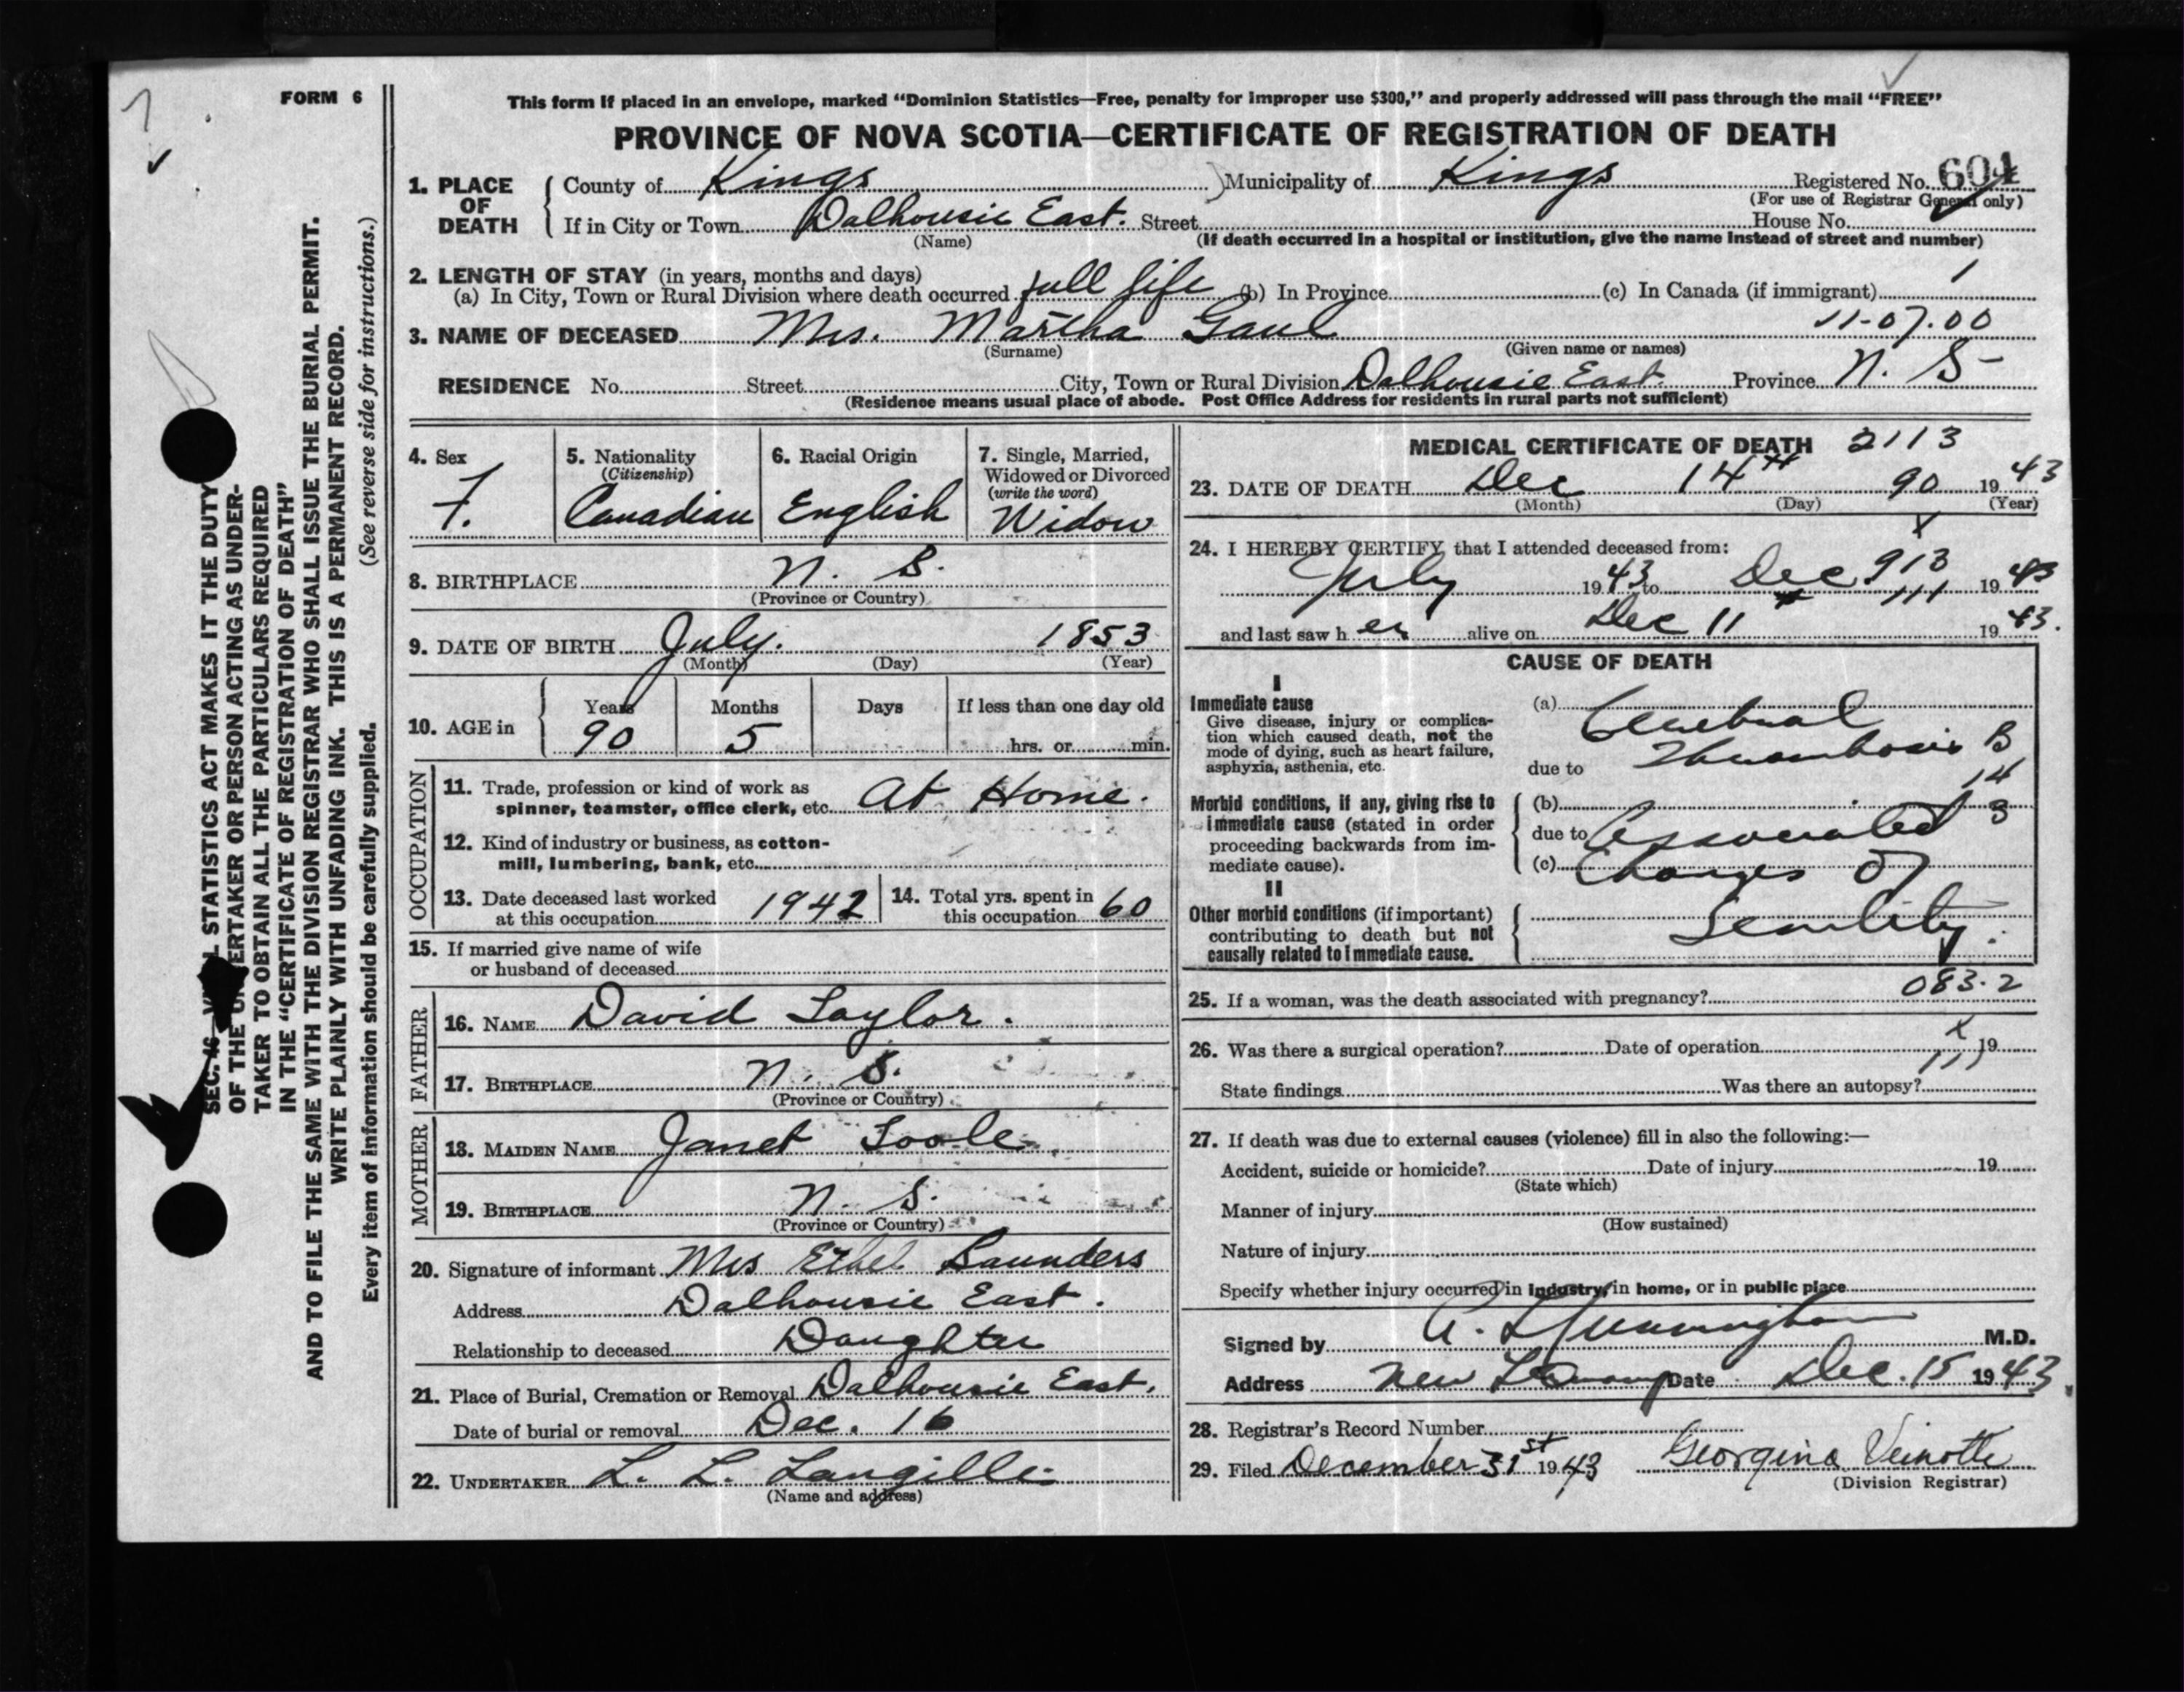 FORM 6
This form if placed in an envelope, marked "Dominion Statistics—Free, penalty for improper use $300," and properly addressed will pass through the mail "FREE"
PROVINCE OF NOVA SCOTIA—CERTIFICATE OF REGISTRATION OF DEATH
1. PLACE OF DEATH County of Kings Municipality of Kings Registered No. 604
(For use of Registrar General only)
If in City or Town Dalhousie East. Street House No.
(Name) (If death occurred in a hospital or institution, give the name instead of street and number)
2. LENGTH OF STAY (in years, months and days)
(a) In City, Town or Rural Division where death occurred full life (b) In Province (c) In Canada (if immigrant) 1
3. NAME OF DECEASED Mrs. Martha Gaul 11-07.00
(Surname) (Given name or names)
RESIDENCE No. Street City, Town or Rural Division Dalhousie East. Province N. S
(Residence means usual place of abode. Post Office Address for residents in rural parts not sufficient)
4. Sex
F.
5. Nationality
(Citizenship)
Canadian
6. Racial Origin
English
7. Single, Married,
Widowed or Divorced
(write the word)
Widow
8. BIRTHPLACE N. S.
(Province or Country)
9. DATE OF BIRTH July. 1853
(Month) (Day) (Year)
10. AGE in
Years Months Days If less than one day old
90 5 hrs. or min.
OCCUPATION
11. Trade, profession or kind of work as
spinner, teamster, office clerk, etc. At Home.
12. Kind of industry or business, as cotton-
mill, lumbering, bank, etc.
13. Date deceased last worked
at this occupation 1942
14. Total yrs. spent in
this occupation 60
15. If married give name of wife
or husband of deceased
FATHER
16. NAME David Taylor.
17. BIRTHPLACE N. S.
(Province or Country)
MOTHER
18. MAIDEN NAME Janet Toole
19. BIRTHPLACE N. S.
(Province or Country)
20. Signature of informant Mrs Ethel Saunders
Address Dalhousie East.
Relationship to deceased Daughter
21. Place of Burial, Cremation or Removal Dalhousie East.
Date of burial or removal Dec. 16
22. UNDERTAKER L. L. Langille
(Name and address)
MEDICAL CERTIFICATE OF DEATH 2113
23. DATE OF DEATH Dec 14th 90 1943
(Month) (Day) (Year)
24. I HEREBY CERTIFY that I attended deceased from:
July 1943 to Dec 913 1943
and last saw her alive on Dec 11 1943.
CAUSE OF DEATH
I
Immediate cause
Give disease, injury or complica-
tion which caused death, not the
mode of dying, such as heart failure,
asphyxia, asthenia, etc.
(a) Cerebral
Thrombosis B
due to
14
Morbid conditions, if any, giving rise to
immediate cause (stated in order
proceeding backwards from im-
mediate cause).
(b)
due to Associated 3
(c) Changes of
II
Other morbid conditions (if important)
contributing to death but not
causally related to immediate cause.
Senility.
25. If a woman, was the death associated with pregnancy? 083.2
26. Was there a surgical operation? Date of operation 19
State findings Was there an autopsy?
27. If death was due to external causes (violence) fill in also the following:—
Accident, suicide or homicide? Date of injury 19
(State which)
Manner of injury
(How sustained)
Nature of injury
Specify whether injury occurred in industry, in home, or in public place
Signed by M.D.
Address New Date Dec. 15 1943
28. Registrar's Record Number
29. Filed December 31st 1943 Georgina Veinotte
(Division Registrar)
SEC. 46—VITAL STATISTICS ACT MAKES IT THE DUTY
OF THE UNDERTAKER OR PERSON ACTING AS UNDER-
TAKER TO OBTAIN ALL THE PARTICULARS REQUIRED
IN THE "CERTIFICATE OF REGISTRATION OF DEATH"
AND TO FILE THE SAME WITH THE DIVISION REGISTRAR WHO SHALL ISSUE THE BURIAL PERMIT.
WRITE PLAINLY WITH UNFADING INK. THIS IS A PERMANENT RECORD.
Every item of information should be carefully supplied. (See reverse side for instructions.)